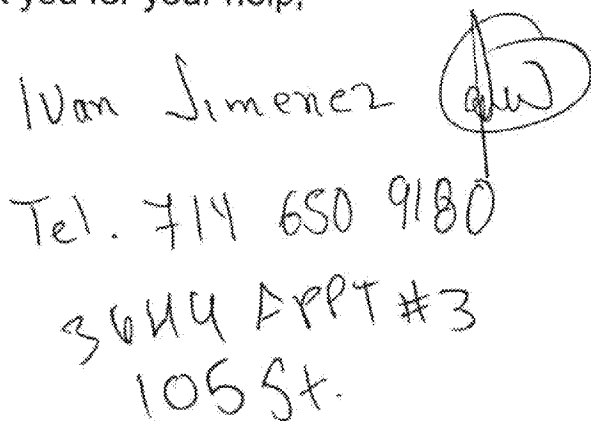 you for your help,
Ivan Jimenez
Tel. 714 650 9180
3644 APPT #3
105 St.